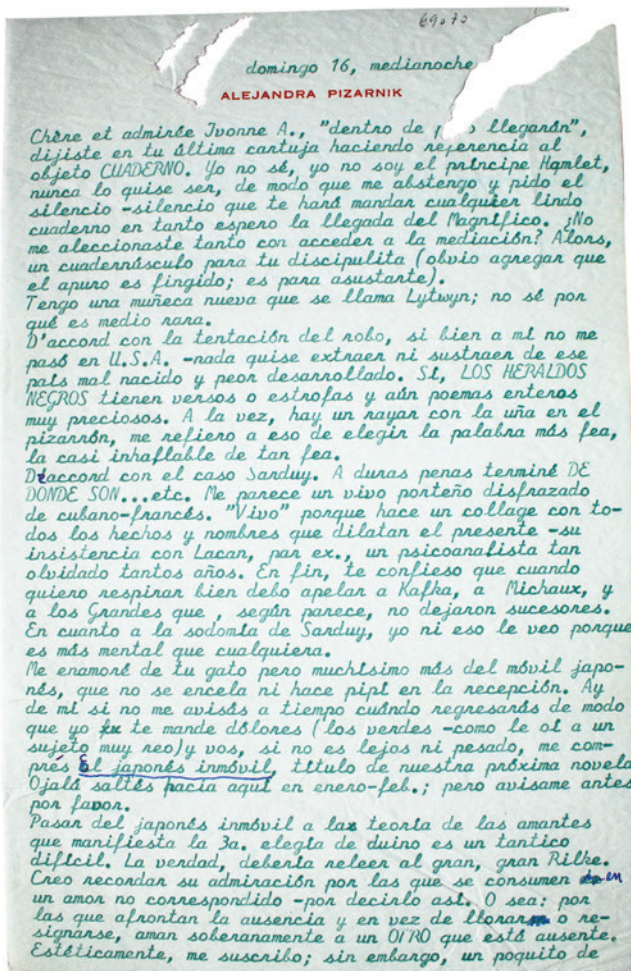 69.70
domingo 16, medianoche
ALEJANDRA PIZARNIK
Chère et admirée Ivonne A., "dentro de p o llegarán",
dijiste en tu última cartuja haciendo referencia al
objeto CUADERNO. Yo no sé, yo no soy el príncipe Hamlet,
nunca lo quise ser, de modo que me abstengo y pido el
silencio -silencio que te hará mandar cualquier lindo
cuaderno en tanto espero la llegada del Magnífico. ¿No
me aleccionaste tanto con acceder a la mediación? Alors,
un cuadernúsculo para tu discipulita (obvio agregar que
el apuro es fingido; es para asustarte).
Tengo una muñeca nueva que se llama Lytwyn; no sé por
qué es medio rara.
D'accord con la tentación del robo, si bien a mí no me
pasó en U.S.A. -nada quise extraer ni sustraer de ese
país mal nacido y peor desarrollado. Sí, LOS HERALDOS
NEGROS tienen versos o estrofas y aún poemas enteros
muy preciosos. A la vez, hay un rayar con la uña en el
pizarrón, me refiero a eso de elegir la palabra más fea,
la casi inhaflable de tan fea.
D'accord con el caso Sarduy. A duras penas terminé DE
DONDE SON...etc. Me parece un vivo porteño disfrazado
de cubano-francés. "Vivo" porque hace un collage con to-
dos los hechos y nombres que dilatan el presente -su
insistencia con Lacan, par ex., un psicoanalista tan
olvidado tantos años. En fin, te confieso que cuando
quiero respirar bien debo apelar a Kafka, a Michaux, y
a los Grandes que , según parece, no dejaron sucesores.
En cuanto a la sodomía de Sarduy, yo ni eso le veo porque
es más mental que cualquiera.
Me enamoré de tu gato pero muchísimo más del móvil japo-
nés, que no se encela ni hace pipí en la recepción. Ay
de mí si no me avisás a tiempo cuándo regresarás de modo
que yo te mande dólores (los verdes -como le oí a un
sujeto muy reo)y vos, si no es lejos ni pesado, me com-
prés El japonés inmóvil, título de nuestra próxima novela
Ojalá saltés hacia aquí en enero-feb.; pero avisame antes
por favor.
Pasar del japonés inmóvil a la teoría de las amantes
que manifiesta la 3a. elegía de duino es un tantico
difícil. La verdad, debería releer al gran, gran Rilke.
Creo recordar su admiración por las que se consumen en
un amor no correspondido -por decirlo así. O sea: por
las que afrontan la ausencia y en vez de llorar o re-
signarse, aman soberanamente a un OTRO que está ausente.
Estéticamente, me suscribo; sin embargo, un poquito de